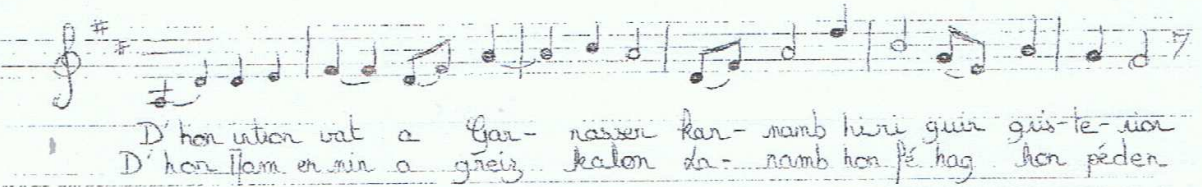 D'hon intron vat a Gar- nasser kan- namb hiri guir gris-te-nion
D'hon Mam en nin a greiz kalon La- namb hon fé hag hon péden